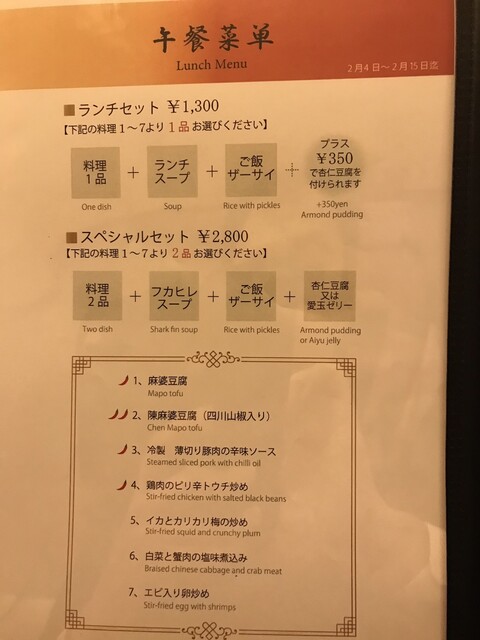 午餐菜单
Lunch Menu
2月4日～2月15日迄
■ランチセット ￥1,300
【下記の料理1～7より 1品 お選びください】
料理
1品
+
ランチ
スープ
+
ご飯
ザーサイ
プラス
￥350
で杏仁豆腐を
付けられます
One dish
Soup
Rice with pickles
+350yen
Armond pudding
■スペシャルセット ￥2,800
【下記の料理1～7より 2品 お選びください】
料理
2品
+
フカヒレ
スープ
+
ご飯
ザーサイ
+
杏仁豆腐
又は
愛玉ゼリー
Two dish
Shark fin soup
Rice with pickles
Armond pudding
or Aiyu jelly
1、麻婆豆腐
Mapo tofu
2、陳麻婆豆腐（四川山椒入り）
Chen Mapo tofu
3、冷製　薄切り豚肉の辛味ソース
Steamed sliced pork with chilli oil
4、鶏肉のピリ辛トウチ炒め
Stir-fried chicken with salted black beans
5、イカとカリカリ梅の炒め
Stir-fried squid and crunchy plum
6、白菜と蟹肉の塩味煮込み
Braised chinese cabbage and crab meat
7、エビ入り卵炒め
Stir-fried egg with shrimps